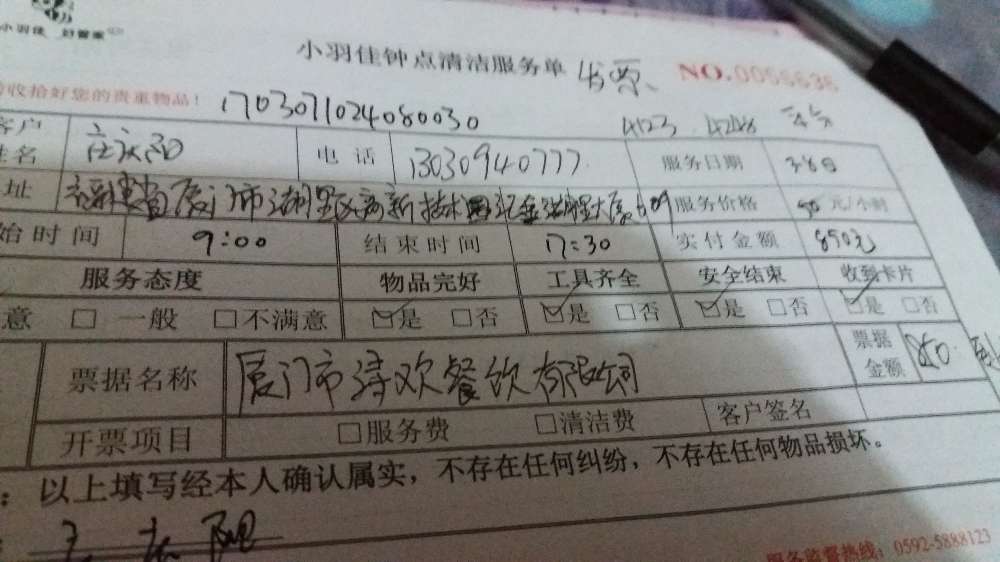 小羽佳 好管家
小羽佳钟点清洁服务单 发票 NO.0056636
收拾好您的贵重物品！ 1703071024080030 4123 4248
客户姓名 电话 13030940777 服务日期 3月8日
址 厦门市湖里区高新技术园 大厦609 服务价格 50元/小时
始时间 9:00 结束时间 17:30 实付金额 850元
服务态度 物品完好 工具齐全 安全结束 收到卡片
意 □一般 □不满意 ☑是 □否 ☑是 □否 ☑是 □否 ☑是 □否
票据名称 厦门市涛欢餐饮有限公司 票据金额 850
开票项目 □服务费 □清洁费 客户签名
：以上填写经本人确认属实，不存在任何纠纷，不存在任何物品损坏。
服务监督热线：0592-5888123